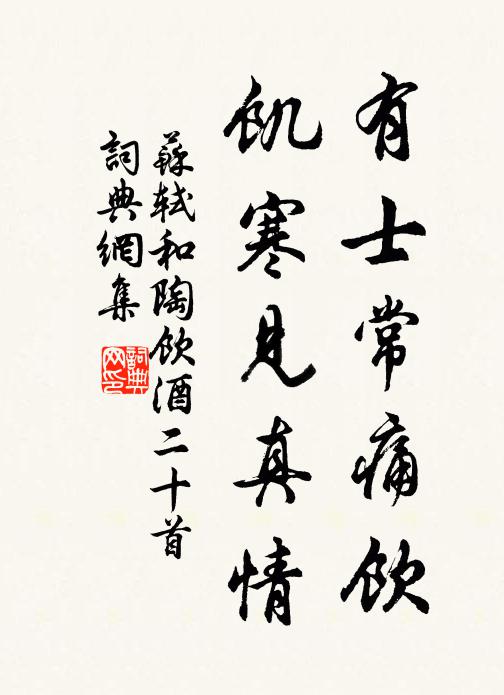 有士常痛飲
飢寒見真情
蘇軾和陶飲酒二十首
詞典網集
詞典
网印